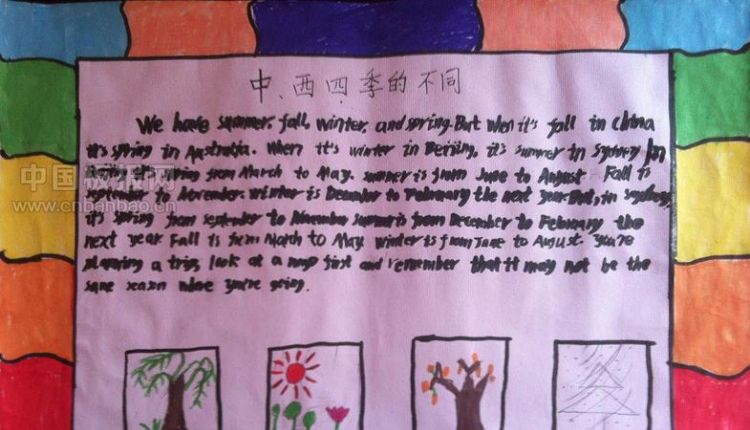 中、西四季的不同
We have summer, fall, winter, and spring. But when it's fall in China
it's spring in Australia. When it's winter in Beijing, it's summer in Sydney In
it's spring from March to May. summer is from June to August Fall is
November. winter is December to February the next year But, in Sydney,
it's spring from september to November summer is from December to February the
next year Fall is from March to May winter is from June to August. you're
planning a trip, look at a map first and remember that it may not be the
same season where you're going.
中国板报网
www.cnbanbao.cn